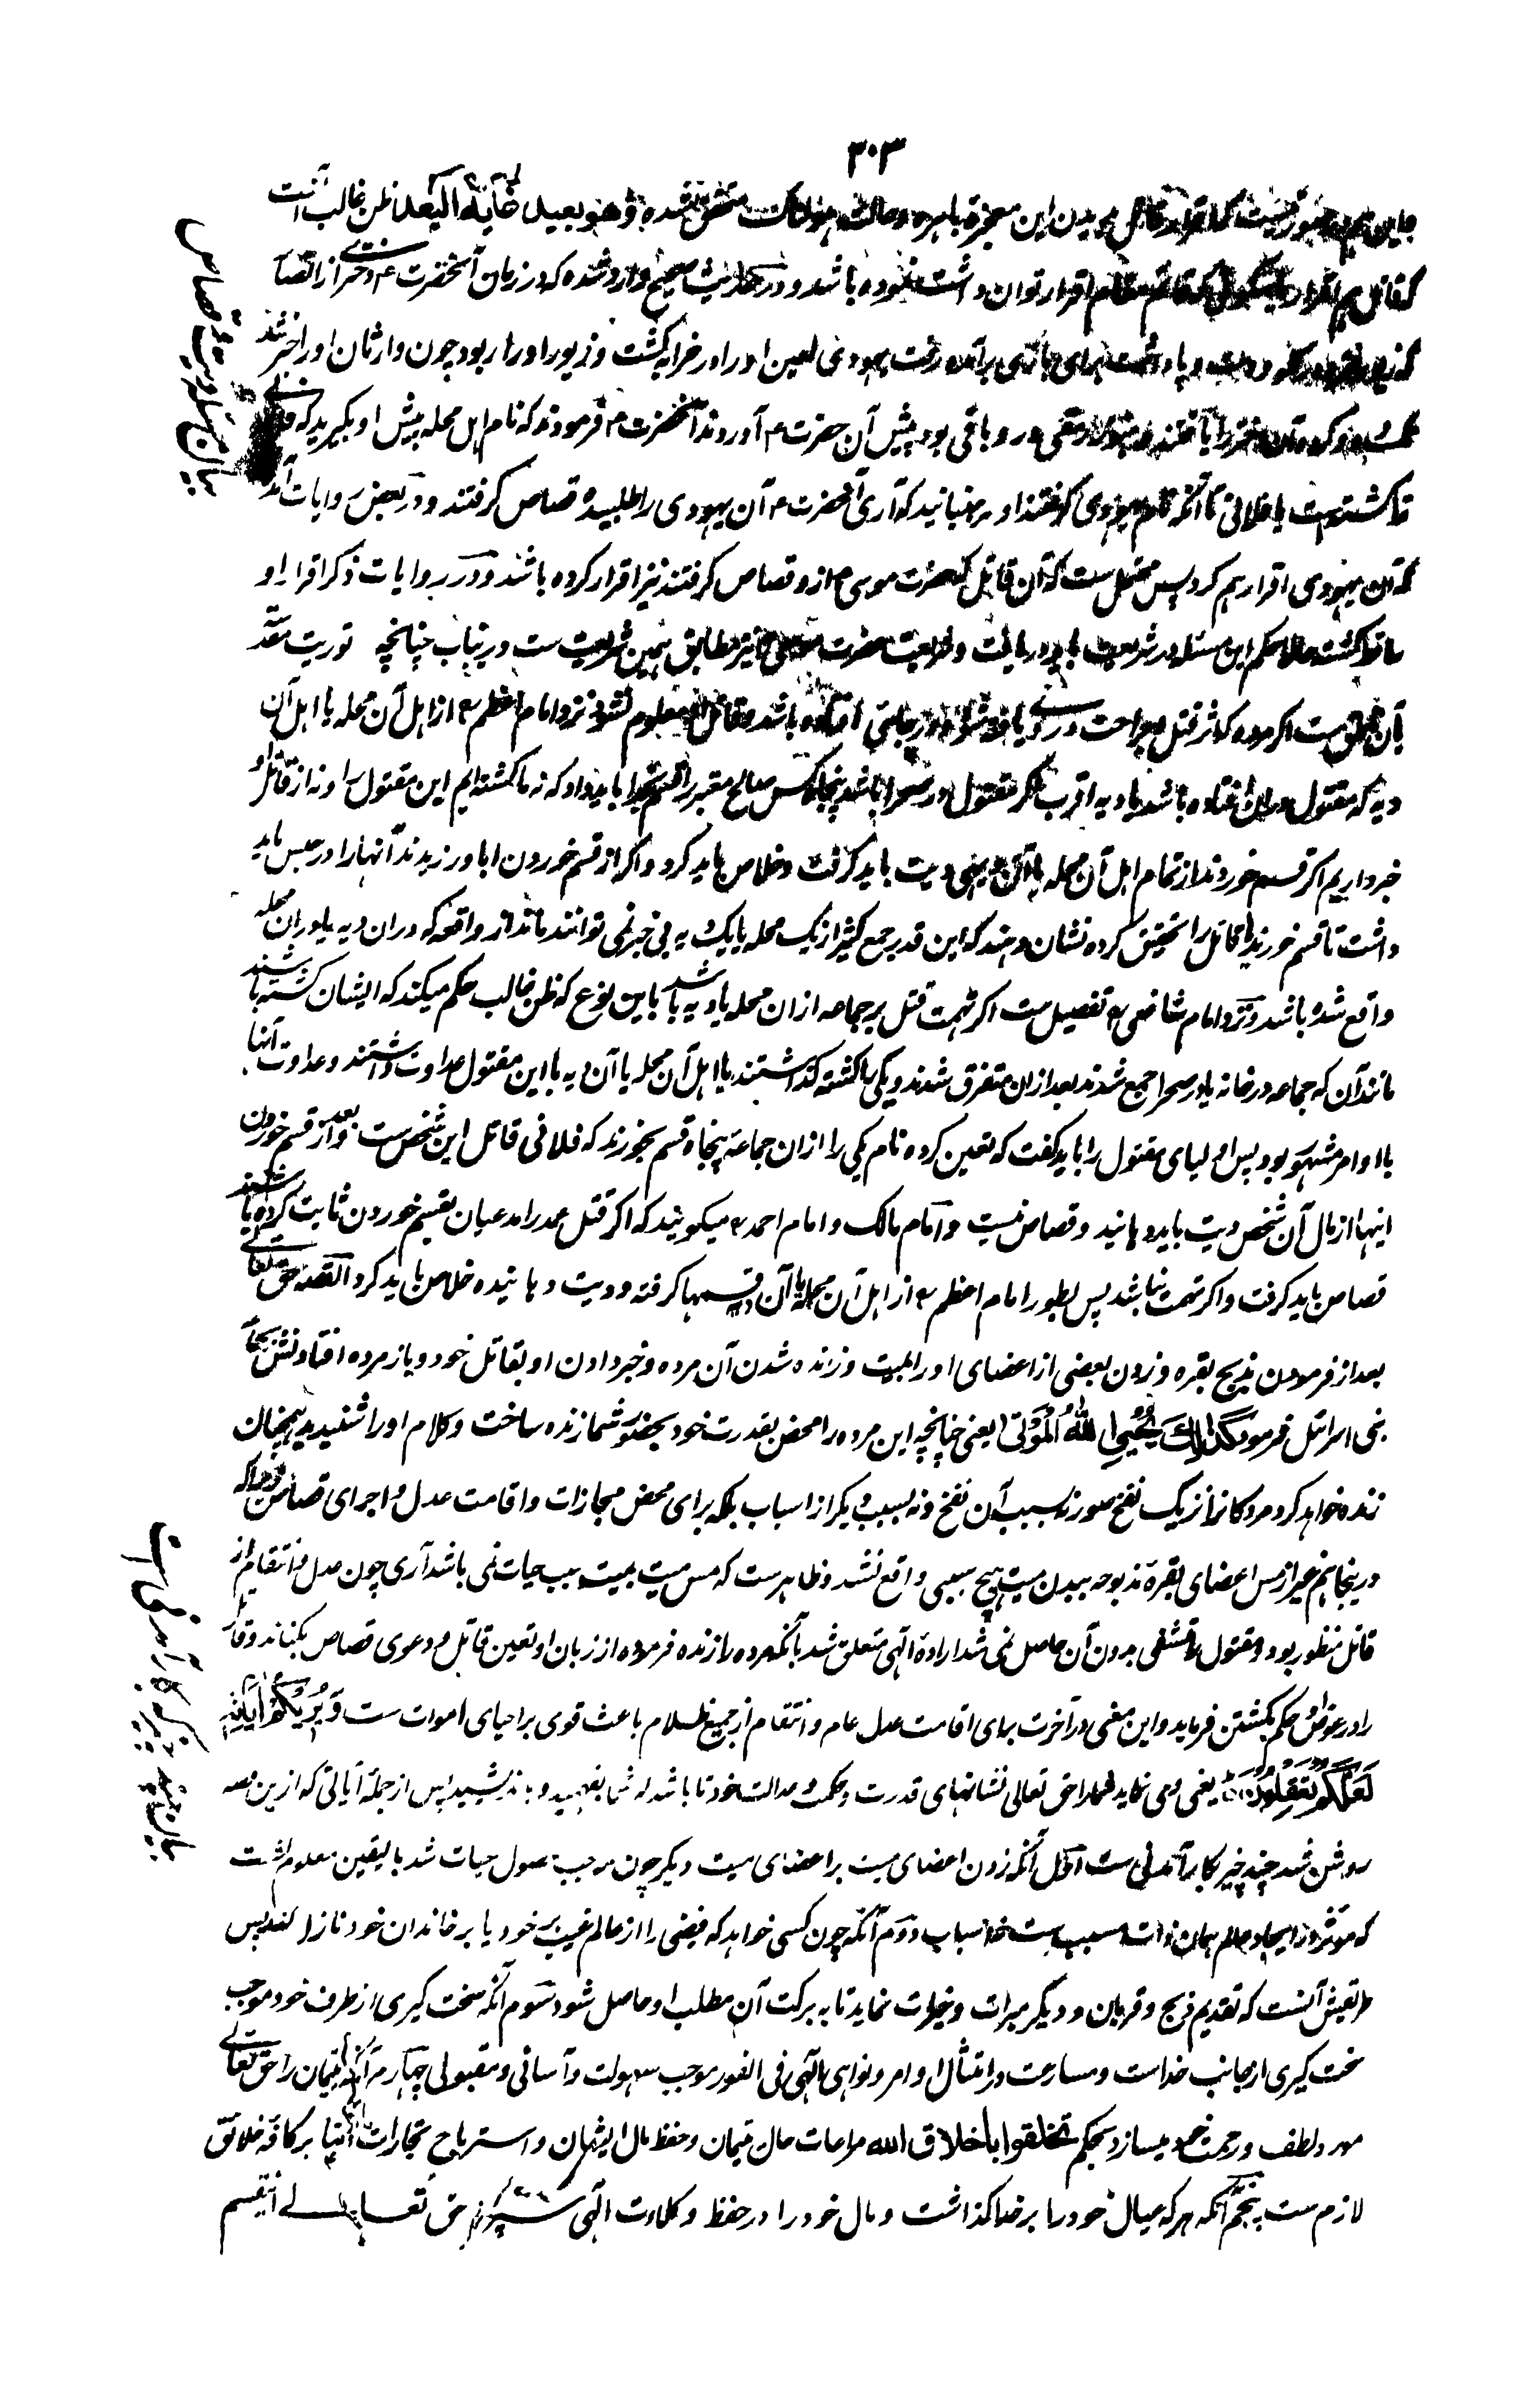 ۳۰۳
این معجزه باهره و حالت متحقق نشده وهو بعید غایة البعد ظن غالب آنست
که قاتل هم اقرار قائم مقام اقرار توان داشت نموده باشد و در حدیث صحیح وارد شده که در زمان آنحضرت ؐ دختری از انصار
برای بازی برآمده رفت یهودی لعین او را در خرابه کشت و زیور او را ربود چون وارثان او را خبر شد
رمقی در و باقی بود پیش آن حضرت ؐ آوردند آنحضرت ؐ فرمودند که نام اهل محله پیش او بگیرید که فلانی
ترا کشته است یا فلانی تا آنکه نام یهودی گرفتند او سر جنبانید که آری آنحضرت ؐ آن یهودی را طلبیده قصاص گرفتند و در بعض روایات آمده
که آن یهودی اقرار هم کرد پس محتمل ست که آن قاتل که حضرت موسی ؑ از و قصاص گرفتند نیز اقرار کرده باشد و در روایات ذکر اقرار او
ساقط گشت حالا حکم این مسئله در شریعت باید دریافت و شریعت حضرت موسی ؑ نیز مطابق همین شریعت ست درینباب چنانچه توریت مقدس
بآن ناطق ست اگر مرده که اثر قتل و جراحت در وی یافته شود در جایی افتاده باشد و قاتل او معلوم نشود نزد امام اعظم ؒ از اهل آن محله یا اهل آن
دیه که مقتول دران افتاده باشد یا دیه اقرب اگر مقتول در صحرا باشد پنجاه کس صالح معتبر را قسم خدا باید داد که نه ما کشته ایم این مقتول را و نه از قاتل او
خبر داریم اگر قسم خوردند از تمام اهل آن محله یا آن دیه دیت باید گرفت و خلاص باید کرد و اگر از قسم خوردن ابا ورزیدند آنها را در حبس باید
داشت تا قسم خورند یا قاتل را تحقیق کرده نشان دهند که این قدر جمع کثیر از یک محله یا یک دیه بی خبر نمی توانند ماند از واقعه که دران دیه یا دران محله
واقع شده باشد و نزد امام شافعی ؒ تفصیل ست اگر تهمت قتل بر جماعه ازان محله یا دیه باشد باین نوع که ظن غالب حکم میکند که ایشان کشته باشند
مانند آن که جماعه در خانه یا در صحرا جمع شدند بعد ازان متفرق شدند و یکی را کشته گذاشتند یا اهل آن محله یا آن دیه با این مقتول عداوت داشتند و عداوت آنها
با او امر مشهور بود پس اولیای مقتول را باید گفت که تعین کرده نام یکی را ازان جماعه پنجاه قسم بخورند که فلانی قاتل این شخص ست و بعد از قسم خوردن
اینها از مال آن شخص دیت باید دهانید و قصاص نیست و امام مالک و امام احمد ؒ میگویند که اگر قتل عمد را مدعیان بقسم خوردن ثابت کرده باشند
قصاص باید گرفت و اگر تهمت نباشد پس بطور امام اعظم ؒ از اهل آن محله یا آن دیه قسمها گرفته و دیت دهانیده خلاص باید کرد القصه حق تعالی
بعد از فرمودن بذبح بقره و زدن بعضی از اعضای او را بمیت و زنده شدن آن مرده و خبر دادن او بقاتل خود و باز مرده افتادنش بجماعه
بنی اسرائیل فرمود کَذٰلِكَ یُحْیِی اللّٰهُ الْمَوْتٰی یعنی چنانچه این مرده را محض بقدرت خود بحضور شما زنده ساخت و کلام او را شنیدید همچنان
زنده خواهد کرد مردگانرا از یک نفخ صور نه بسبب آن نفخ و نه بسبب دیگر از اسباب بلکه برای محض مجازات و اقامت عدل و اجرای قصاص چراکه
درینجا هم غیر از مس اعضای بقرۀ مذبوحه ببدن میت هیچ سببی واقع نشد و ظاهر ست که مس میت بمیت سبب حیات نمی باشد آری چون عدل و انتقام از
قاتل منظور بود و مقتول را تشفی بدون آن حاصل نمی شد ارادۀ الهی متعلق شد بآنکه مرده را زنده فرموده از زبان او تعین قاتل و دعوی قصاص بکناند و قاتل
را در عوض او حکم بکشتن فرماید و این معنی در آخرت برای اقامت عدل عام و انتقام از جمیع ظلام باعث قوی بر احیای اموات ست وَ یُرِیْكُمْ اٰیَاتِهٖ
لَعَلَّكُمْ تَعْقِلُوْنَ یعنی و می نماید شما را حق تعالی نشانهای قدرت و حکمت و عدالت خود تا باشد که شما بفهمید و بیندیشید پس از جمله آیاتی که ازین قصه
روشن شد چند چیز بکار آمدنی ست اول آنکه زدن اعضای میت بر اعضای میت دیگر چون موجب حصول حیات شد بالیقین معلوم گشت
که مؤثر در ایجاد عالم همان ذات مسبب ست نه اسباب دوم آنکه چون کسی خواهد که فیضی را از عالم غیب بر خود یا بر خاندان خود نازل کند پس
طریقش آنست که تقدیم ذبح و قربان و دیگر مبرات و خیرات نماید تا به برکت آن مطلب او حاصل شود سوم آنکه سخت گیری از طرف خود موجب
سخت گیری از جانب خداست و مسارعت در امتثال اوامر و نواهی الهی فی الفور موجب سهولت و آسانی و مقبولی چهارم آنکه یتیمان را حق تعالی
مورد لطف و رحمت خود میسازد بحکم تخلقوا باخلاق الله مراعات حال یتیمان و حفظ مال ایشان و استرباح تجارات بر کافه خلائق
لازم ست پنجم آنکه هر که عیال خود را بر خدا گذاشت و مال خود را در حفظ و کلاءت الهی سپرد حق تعالی اینقسم
بیان حکم قسامت و دیت و قصاص
بیان چند چیز که بکار آمدنی است